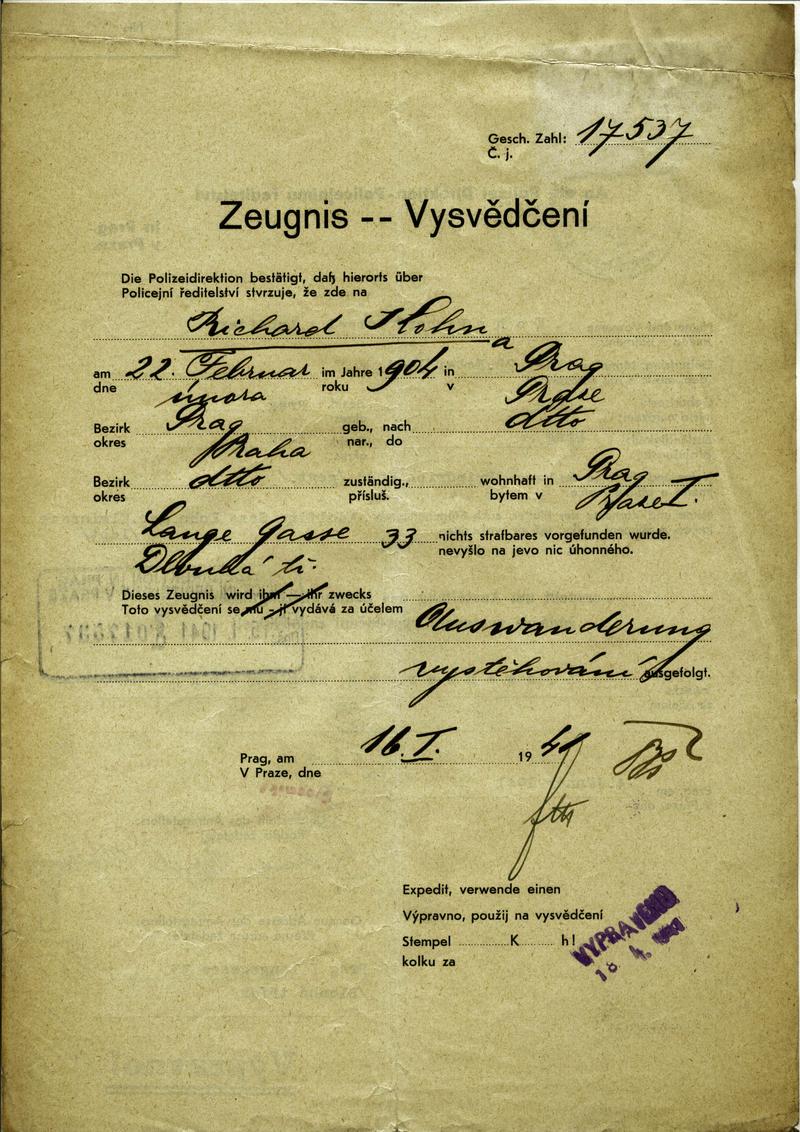 Gesch. Zahl: 17537
Č. j.
Zeugnis -- Vysvědčení
Die Polizeidirektion bestätigt, daß hierorts über
Policejní ředitelství stvrzuje, že zde na
Richard Kohn
am 22. Februar im Jahre 1904 in Prag
dne února roku v Praze
Bezirk Prag geb., nach dtto
okres Praha nar., do
Bezirk dtto zuständig., wohnhaft in Prag
okres přísluš. bytem v Praze I.
Lange Gasse 33 nichts strafbares vorgefunden wurde.
Dlouhá tř. nevyšlo na jevo nic úhonného.
Dieses Zeugnis wird ihm — ihr zwecks
Toto vysvědčení se mu - jí vydává za účelem
Auswanderung
vystěhování ausgefolgt.
Prag, am 16. I. 1941
V Praze, dne
Expedit, verwende einen
Výpravno, použij na vysvědčení
Stempel K hl
kolku za
VYPRAVENO